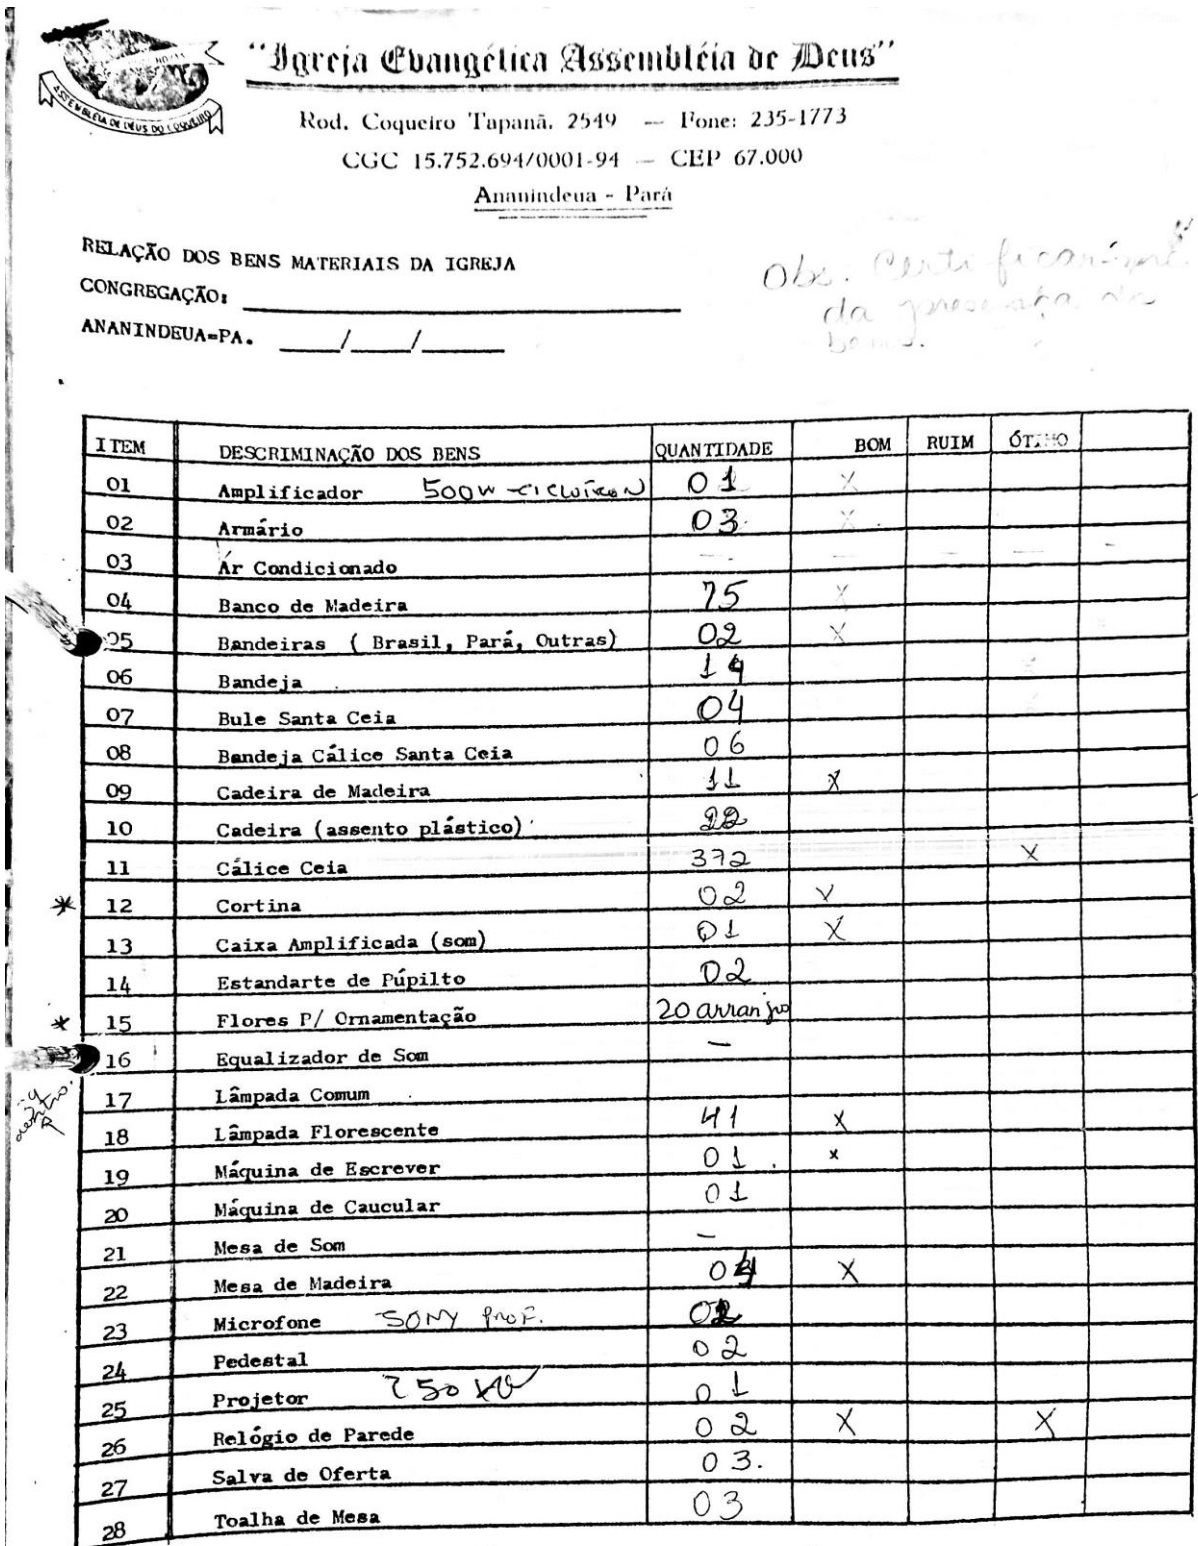 ASSEMBLÉIA DE DEUS DO COQUEIRO
"Igreja Evangélica Assembléia de Deus"
Rod. Coqueiro Tapanã, 2549 — Fone: 235-1773
CGC 15.752.694/0001-94 — CEP 67.000
Ananindeua - Pará
RELAÇÃO DOS BENS MATERIAIS DA IGREJA
CONGREGAÇÃO:
ANANINDEUA=PA. ____/____/____
Obs. Certificar-se
da presença do
ITEM DESCRIMINAÇÃO DOS BENS QUANTIDADE BOM RUIM ÓTIMO
01 Amplificador 500W 01 X
02 Armário 03 X
03 Ar Condicionado — — — — -
04 Banco de Madeira 75 X
05 Bandeiras ( Brasil, Pará, Outras) 02 X
06 Bandeja 14
07 Bule Santa Ceia 04
08 Bandeja Cálice Santa Ceia 06
09 Cadeira de Madeira 11 X
10 Cadeira (assento plástico) 22
11 Cálice Ceia 372 X
* 12 Cortina 02 X
13 Caixa Amplificada (som) 01 X
14 Estandarte de Púpilto 02
* 15 Flores P/ Ornamentação 20 arranjo
16 Equalizador de Som —
17 Lâmpada Comum
18 Lâmpada Florescente 41 X
19 Máquina de Escrever 01 x
20 Máquina de Caucular 01
21 Mesa de Som —
22 Mesa de Madeira 04 X
23 Microfone SONY Prof. 02
24 Pedestal 02
25 Projetor 01
26 Relógio de Parede 02 X X
27 Salva de Oferta 03.
28 Toalha de Mesa 03